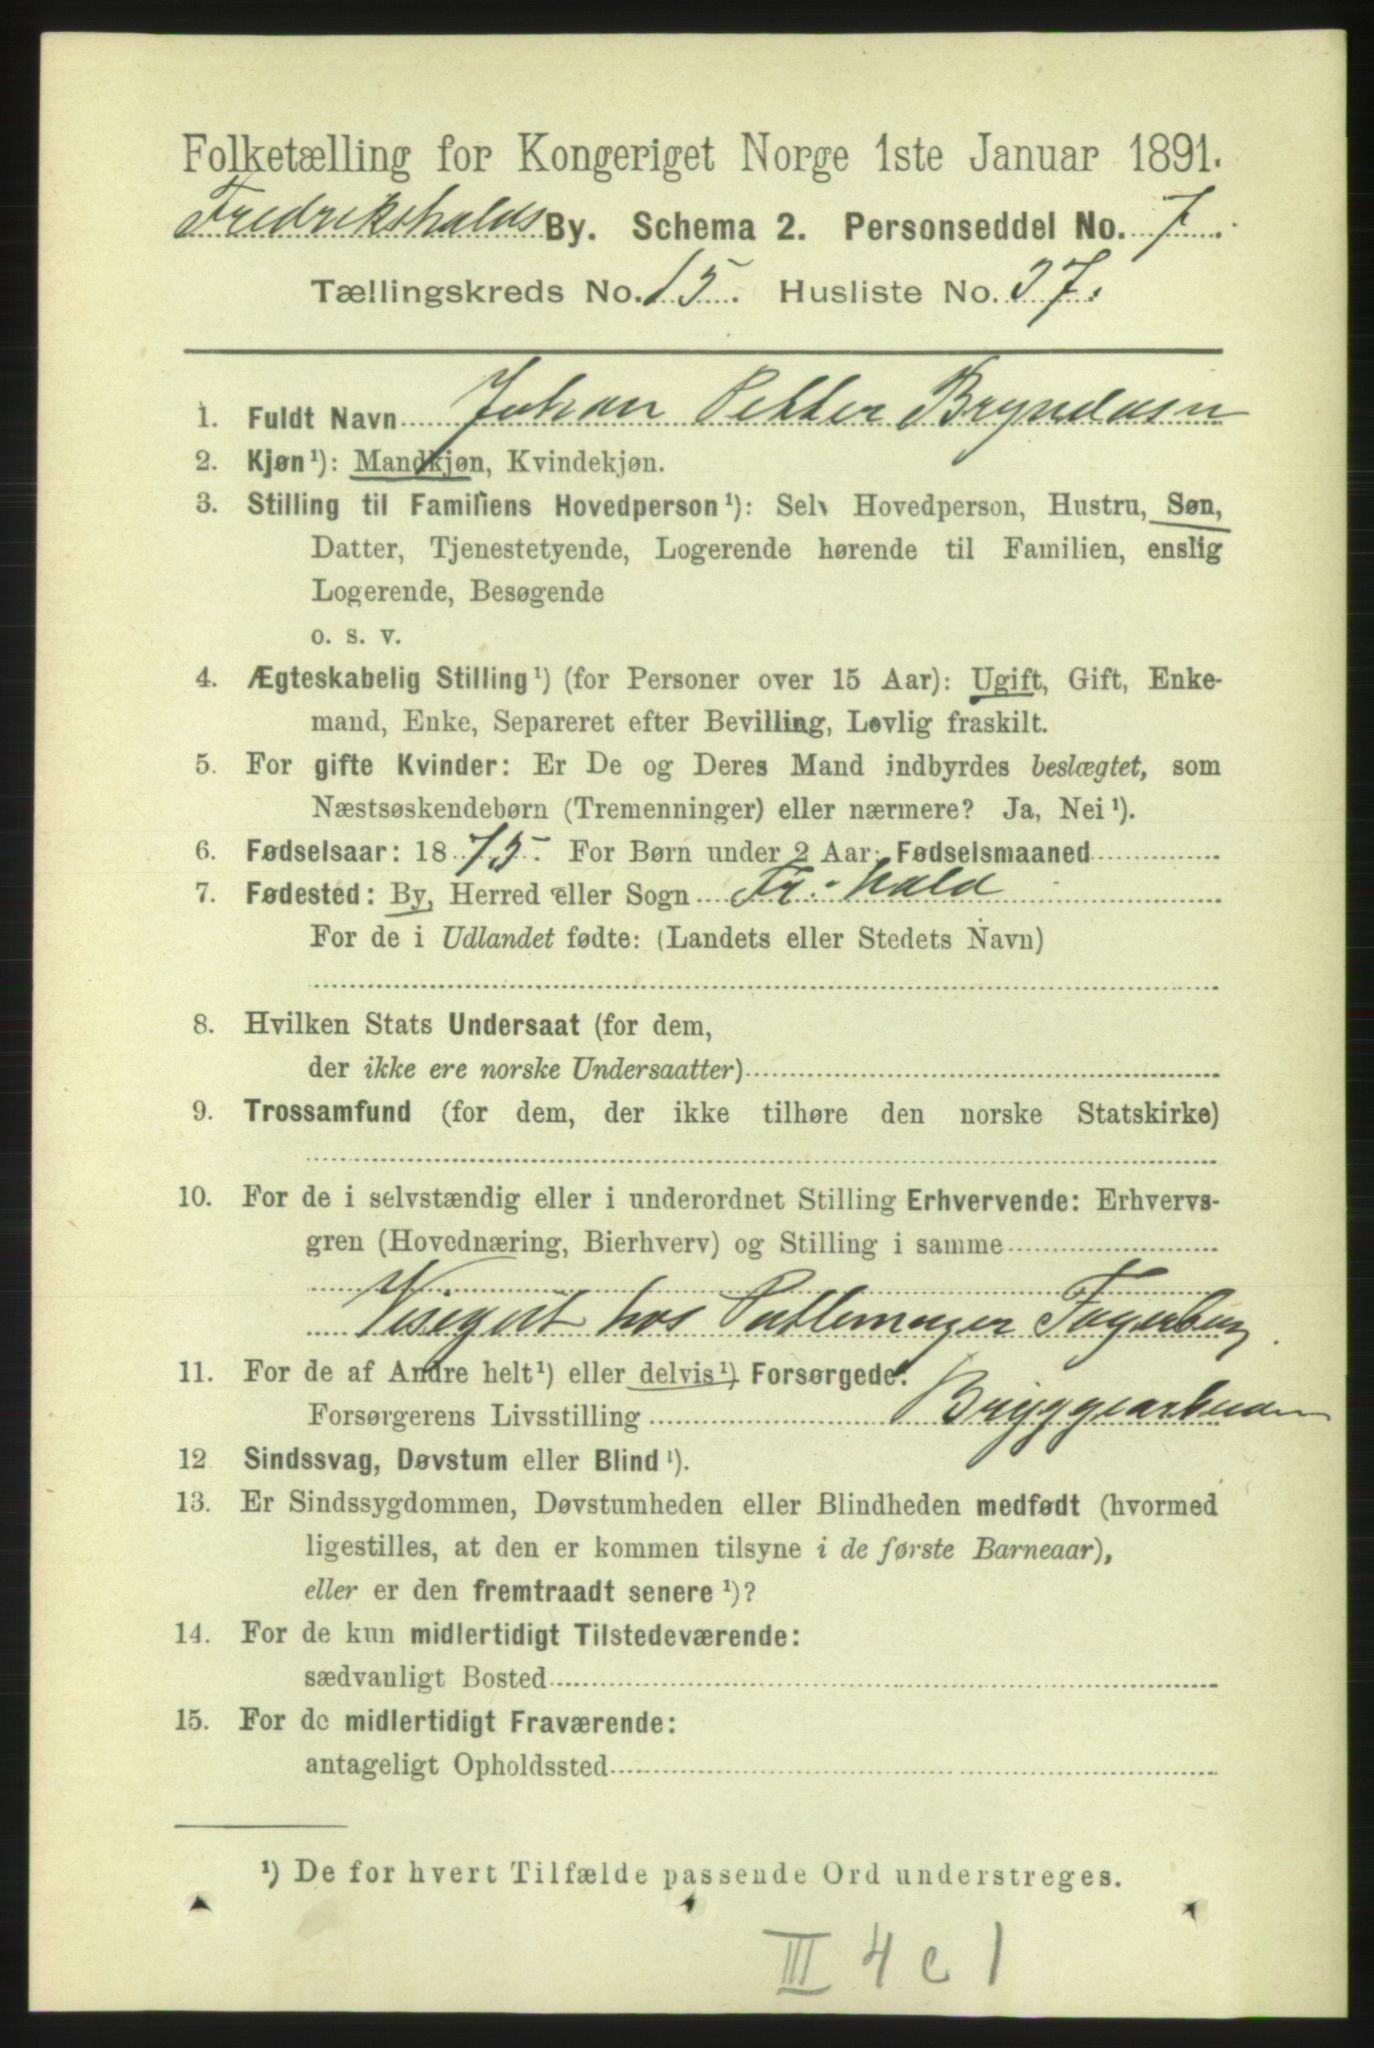 Folketælling for Kongeriget Norge 1ste Januar 1891.
Fredrikshalds By. Schema 2. Personseddel No. 7.
Tællingskreds No. 15. Husliste No. 37.
1. Fuldt Navn Johan Petter Bryndsen
2. Kjøn¹): Mandkjøn, Kvindekjøn.
3. Stilling til Familiens Hovedperson¹): Selv Hovedperson, Hustru, Søn,
Datter, Tjenestetyende, Logerende hørende til Familien, enslig
Logerende, Besøgende
o. s. v.
4. Ægteskabelig Stilling¹) (for Personer over 15 Aar): Ugift, Gift, Enke-
mand, Enke, Separeret efter Bevilling, Lovlig fraskilt.
5. For gifte Kvinder: Er De og Deres Mand indbyrdes beslægtet, som
Næstsøskendebørn (Tremenninger) eller nærmere? Ja, Nei¹).
6. Fødselsaar: 1875. For Børn under 2 Aar: Fødselsmaaned
7. Fødested: By, Herred eller Sogn Fr.hald
For de i Udlandet fødte: (Landets eller Stedets Navn)
8. Hvilken Stats Undersaat (for dem,
der ikke ere norske Undersaatter)
9. Trossamfund (for dem, der ikke tilhøre den norske Statskirke)
10. For de i selvstændig eller i underordnet Stilling Erhvervende: Erhvervs-
gren (Hovednæring, Bierhverv) og Stilling i samme
Visegut hos Fagerberg
11. For de af Andre helt¹) eller delvis¹) Forsørgede:
Forsørgerens Livsstilling Bryggearbeider
12 Sindssvag, Døvstum eller Blind¹).
13. Er Sindssygdommen, Døvstumheden eller Blindheden medfødt (hvormed
ligestilles, at den er kommen tilsyne i de første Barneaar),
eller er den fremtraadt senere¹)?
14. For de kun midlertidigt Tilstedeværende:
sædvanligt Bosted
15. For de midlertidigt Fraværende:
antageligt Opholdssted
¹) De for hvert Tilfælde passende Ord understreges.
III 4 c 1